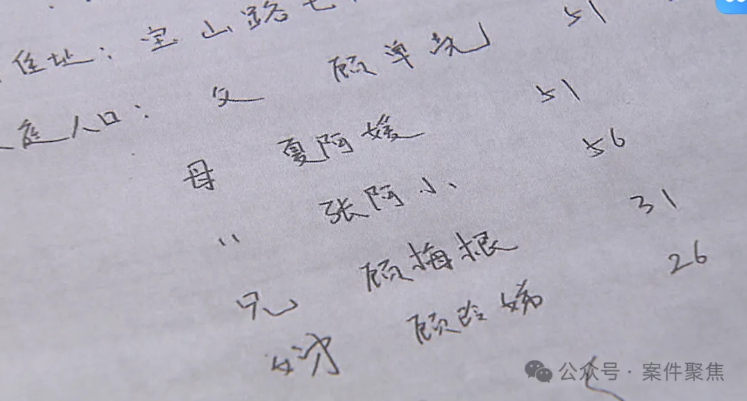 住址：宝山路七
庭人口：父 顾单先 51
母 夏阿媛 51
〃 张阿小 56
兄 顾梅根 31
顾玲娣 26
公众号·案件聚焦